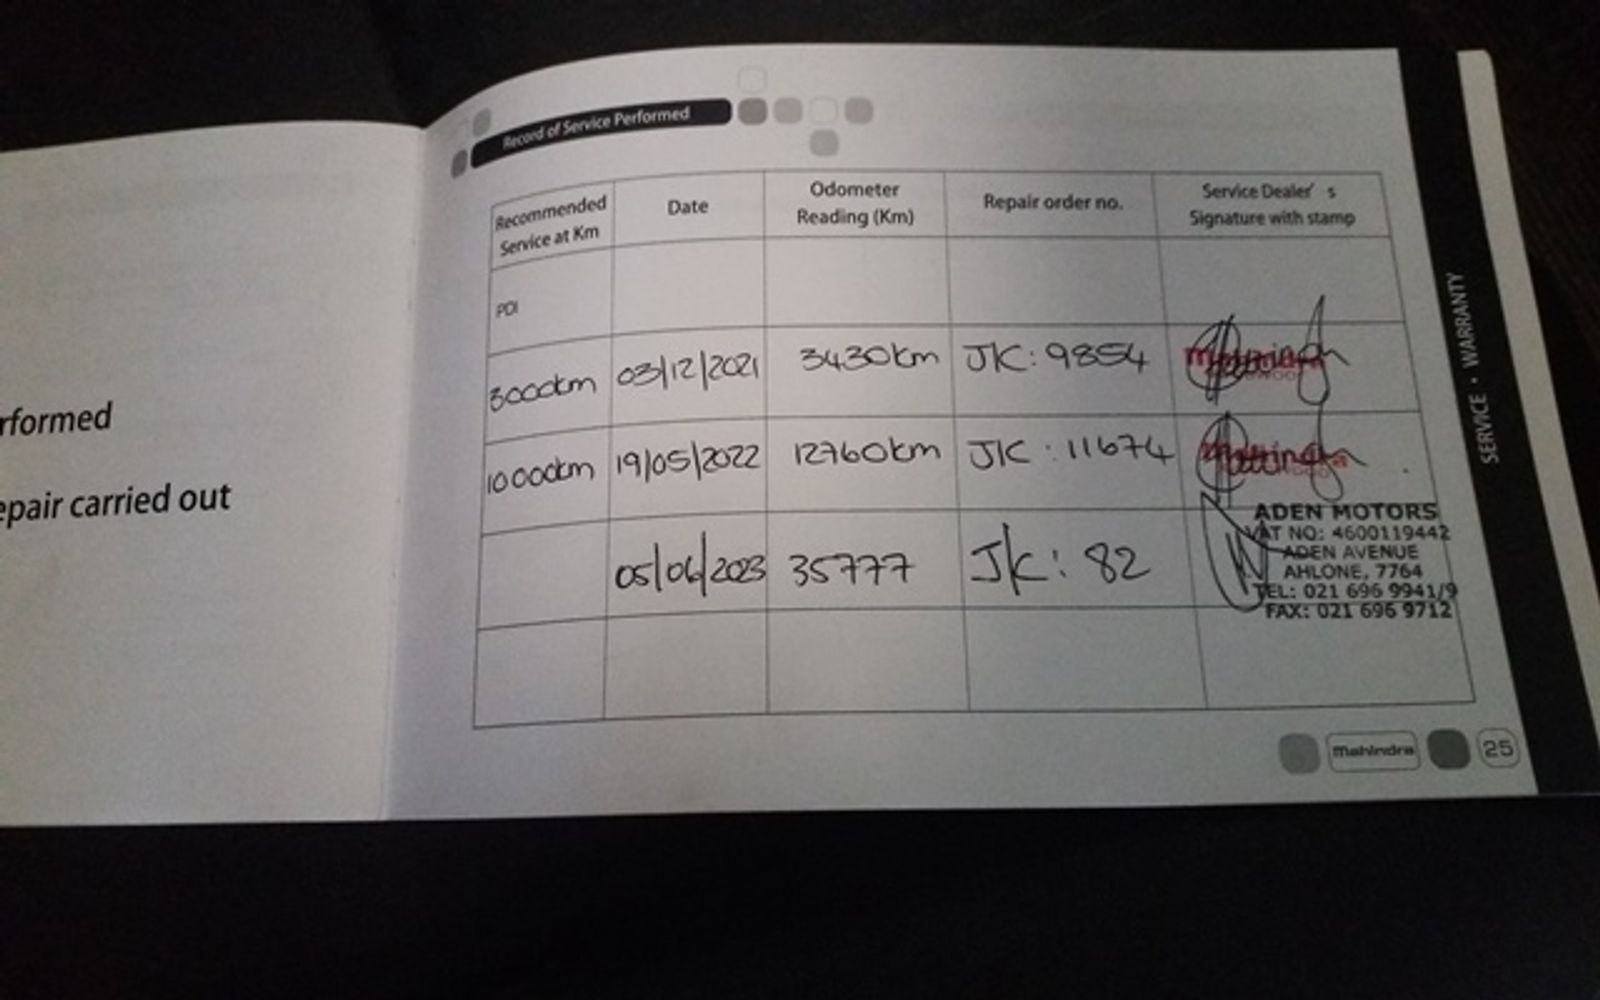 rformed
epair carried out
Record of Service Performed
Recommended Service at Km
Date
Odometer Reading (Km)
Repair order no.
Service Dealer's Signature with stamp
PDI
3000km 03/12/2021 3430km JK: 9854
10000km 19/05/2022 12760km JK: 11674
05/06/2023 35777 JK: 82
ADEN MOTORS
VAT NO: 4600119442
ADEN AVENUE
AHLONE, 7764
TEL: 021 696 9941/9
FAX: 021 696 9712
SERVICE • WARRANTY
Mahindra
25